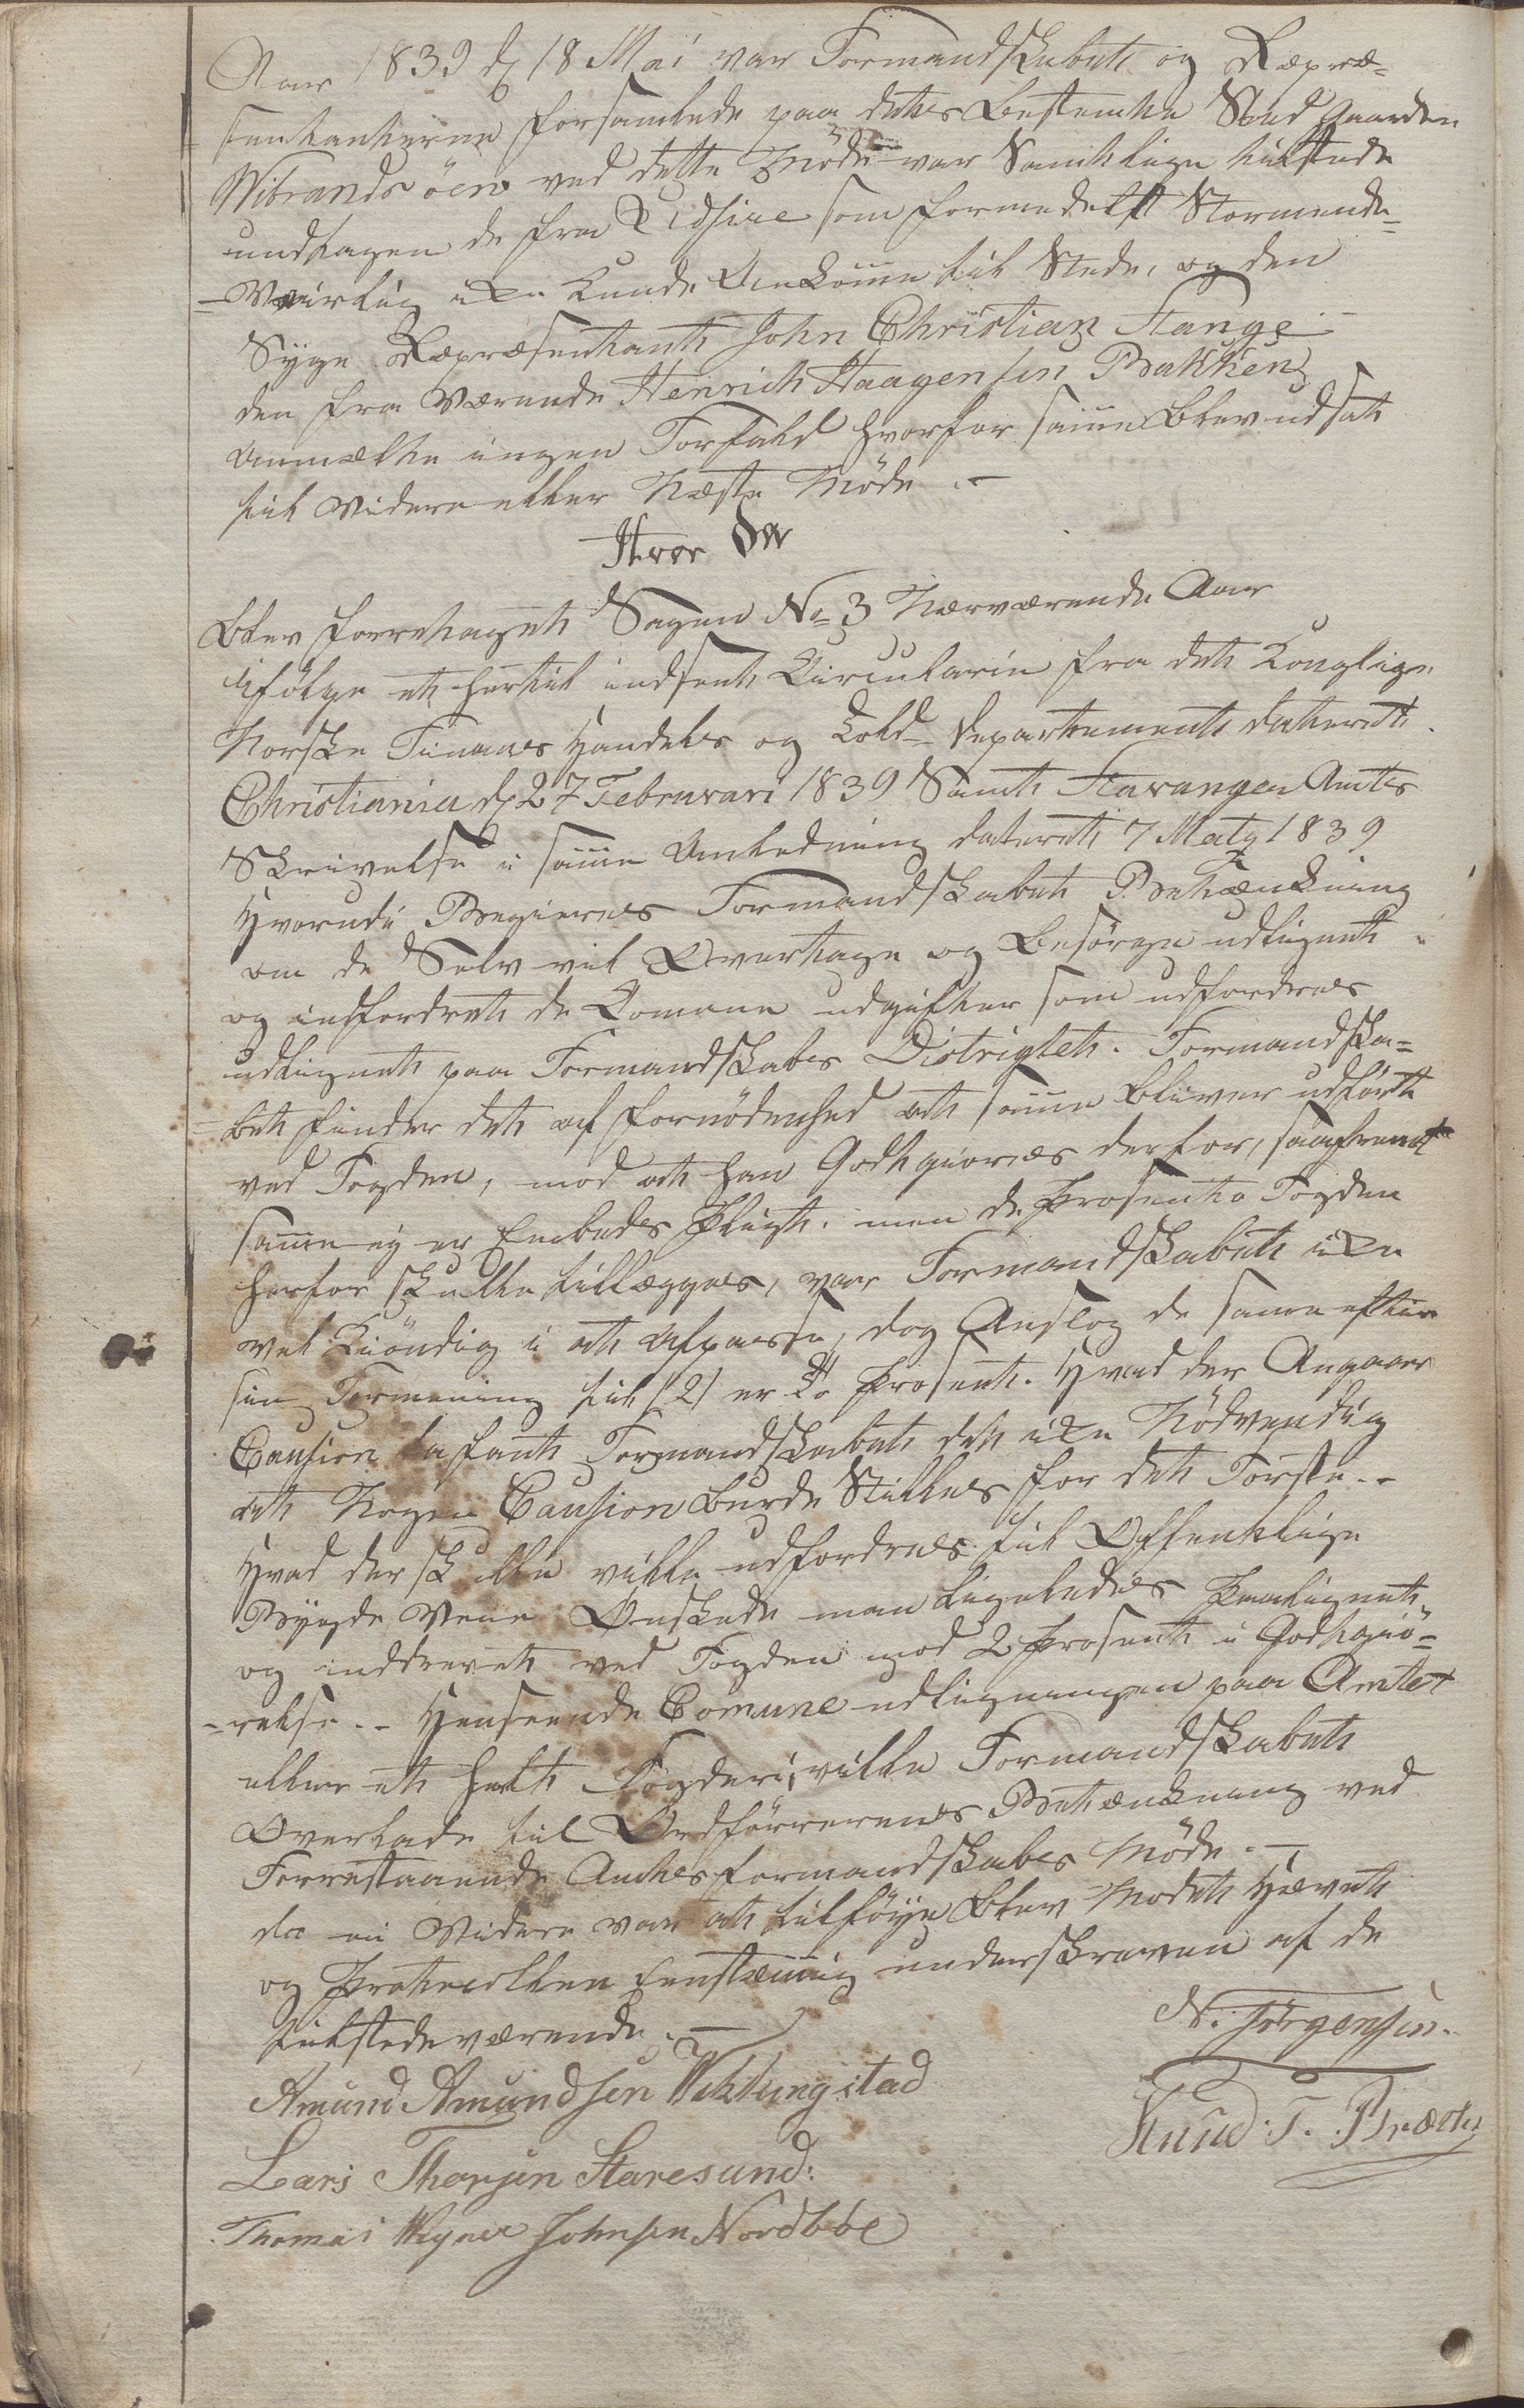 Aar 1839 d 18 Mai var Formandskabet og Repræ=
sentanterne forsamlede paa dets bestemte Sted Gaarden
Wibrandsöen ved dette Möde var Samtlige tilstede
undtagen de fra Udsire som formedelst Stormende=
=Veirlig ike kunde Ankome til Stede, og den
Syge Repræsentant John Christian Stange
den fra værende Henrich Haagensen Bakken
anmælte ingen Forfald hvorfor same blev udsat
til videre eller Næste Möde.-
Hvor Da
blev forretaget Sagen No= 3 Nærværende Aar
ifölge et hertil indsent Circulærie fra det Konglige
Norske Finants Handels og Told-Departement dateret
Christiania d 27 Februari 1839 Samt Stavanger Amts
Skrivelse i same Anledning dateret 7 Marty 1839
Hvorudi Begiæres Formandskabets Betænkning
om de Selv vil Overtage og besörge udlignet
og indfordret de Comune udgifter som udfordres
udlignet paa Formandskabs Distrigtet. Formandska=
=bet finder det af fornödenhed at same bliver udfört
ved Fogden, mod at han Godtgiöres derfor, saafremt
same ej er Embeds Pligt. men de Prosento Fogden
herfor skulle tillægges, var Formandskabet ike
vel Kiöndig i at afpasse, dog Anslog de same efter
sin Formening til (2) er To Prosent. Hvad der Angaar
Caution befant Formandskabet det ike Nödvendig
at Nogen Caution burde Stilles for det Förste.-
Hvad der skulle ville udfordres til Offentlige
Bygde Veie Önskede man ligeledes Paalignet
og inddrevet ved Fogden mod 2 Prosent i Godtgiö=
=relse.- Henseende Comune udligningen paa Amtet
eller et helt Fogderi, ville Formandskabet
Overlade til Ordförerenes Betænkning ved
Forestaaende Amtsformandskabs Möde.-
da ei Videre var at tilföye blev Mödet Hævet
og Protocollen Eenstæmig underskreven af de
tilstedeværende.-
N. Jörgensen.
Amund Amundsen Wiktungstad
Knud T. Bræcke
Lars Thorsen Staresund:
Thomas Johnsen Nordböe